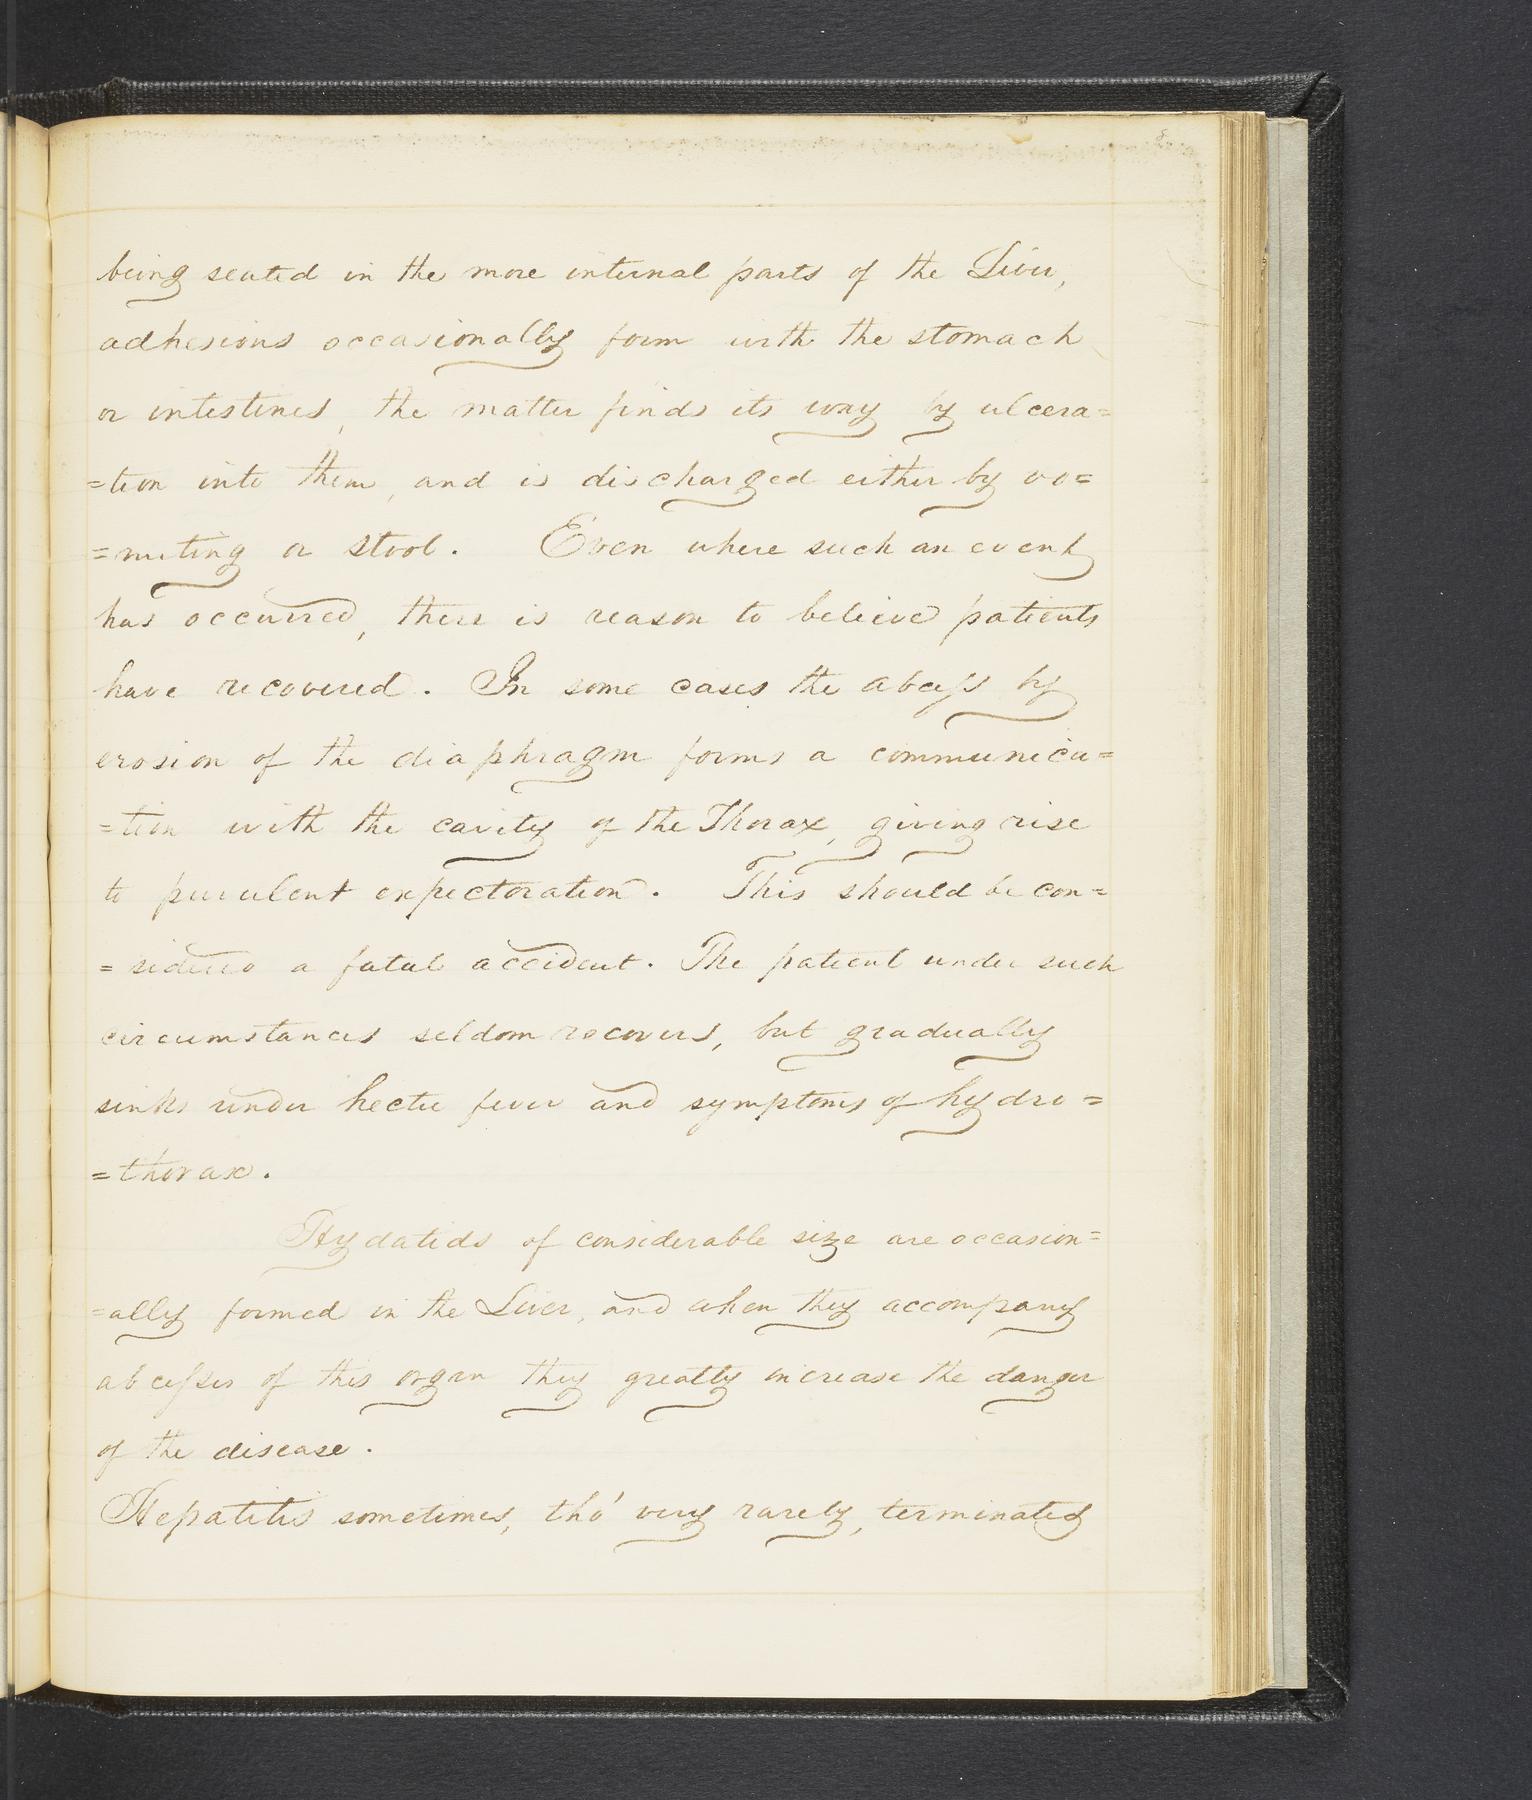 being seated in the more internal parts of the Liver,
adhesions occasionally form with the stomach
or intestines, the matter finds its way by ulcera=
=tion into them, and is discharged either by vo=
=miting or stool. Even where such an event
has occurred, there is reason to believe patients
have recovered. In some cases the abcess by
erosion of the diaphragm forms a communica=
=tion with the cavity of the Thorax, giving rise
to purulent expectoration. This should be con=
=sidered a fatal accident. The patient under such
circumstances seldom recovers, but gradually
sinks under hectic fever and symptoms of hydro=
=thorax.
Hydatids of considerable size are occasion=
=ally formed in the Liver, and when they accompany
abcesses of this organ they greatly increase the danger
of the disease.
Hepatitis sometimes, tho' very rarely, terminates